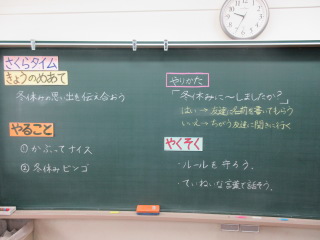 さくらタイム
きょうのめあて
冬休みの思い出を伝え合おう
やること
①かぶってナイス
②冬休みビンゴ
やりかた
「冬休みに〜しましたか?」
はい→友達に名前を書いてもらう
いいえ→ちがう友達に聞きに行く
やくそく
・ルールを守ろう。
・ていねいな言葉で話そう。